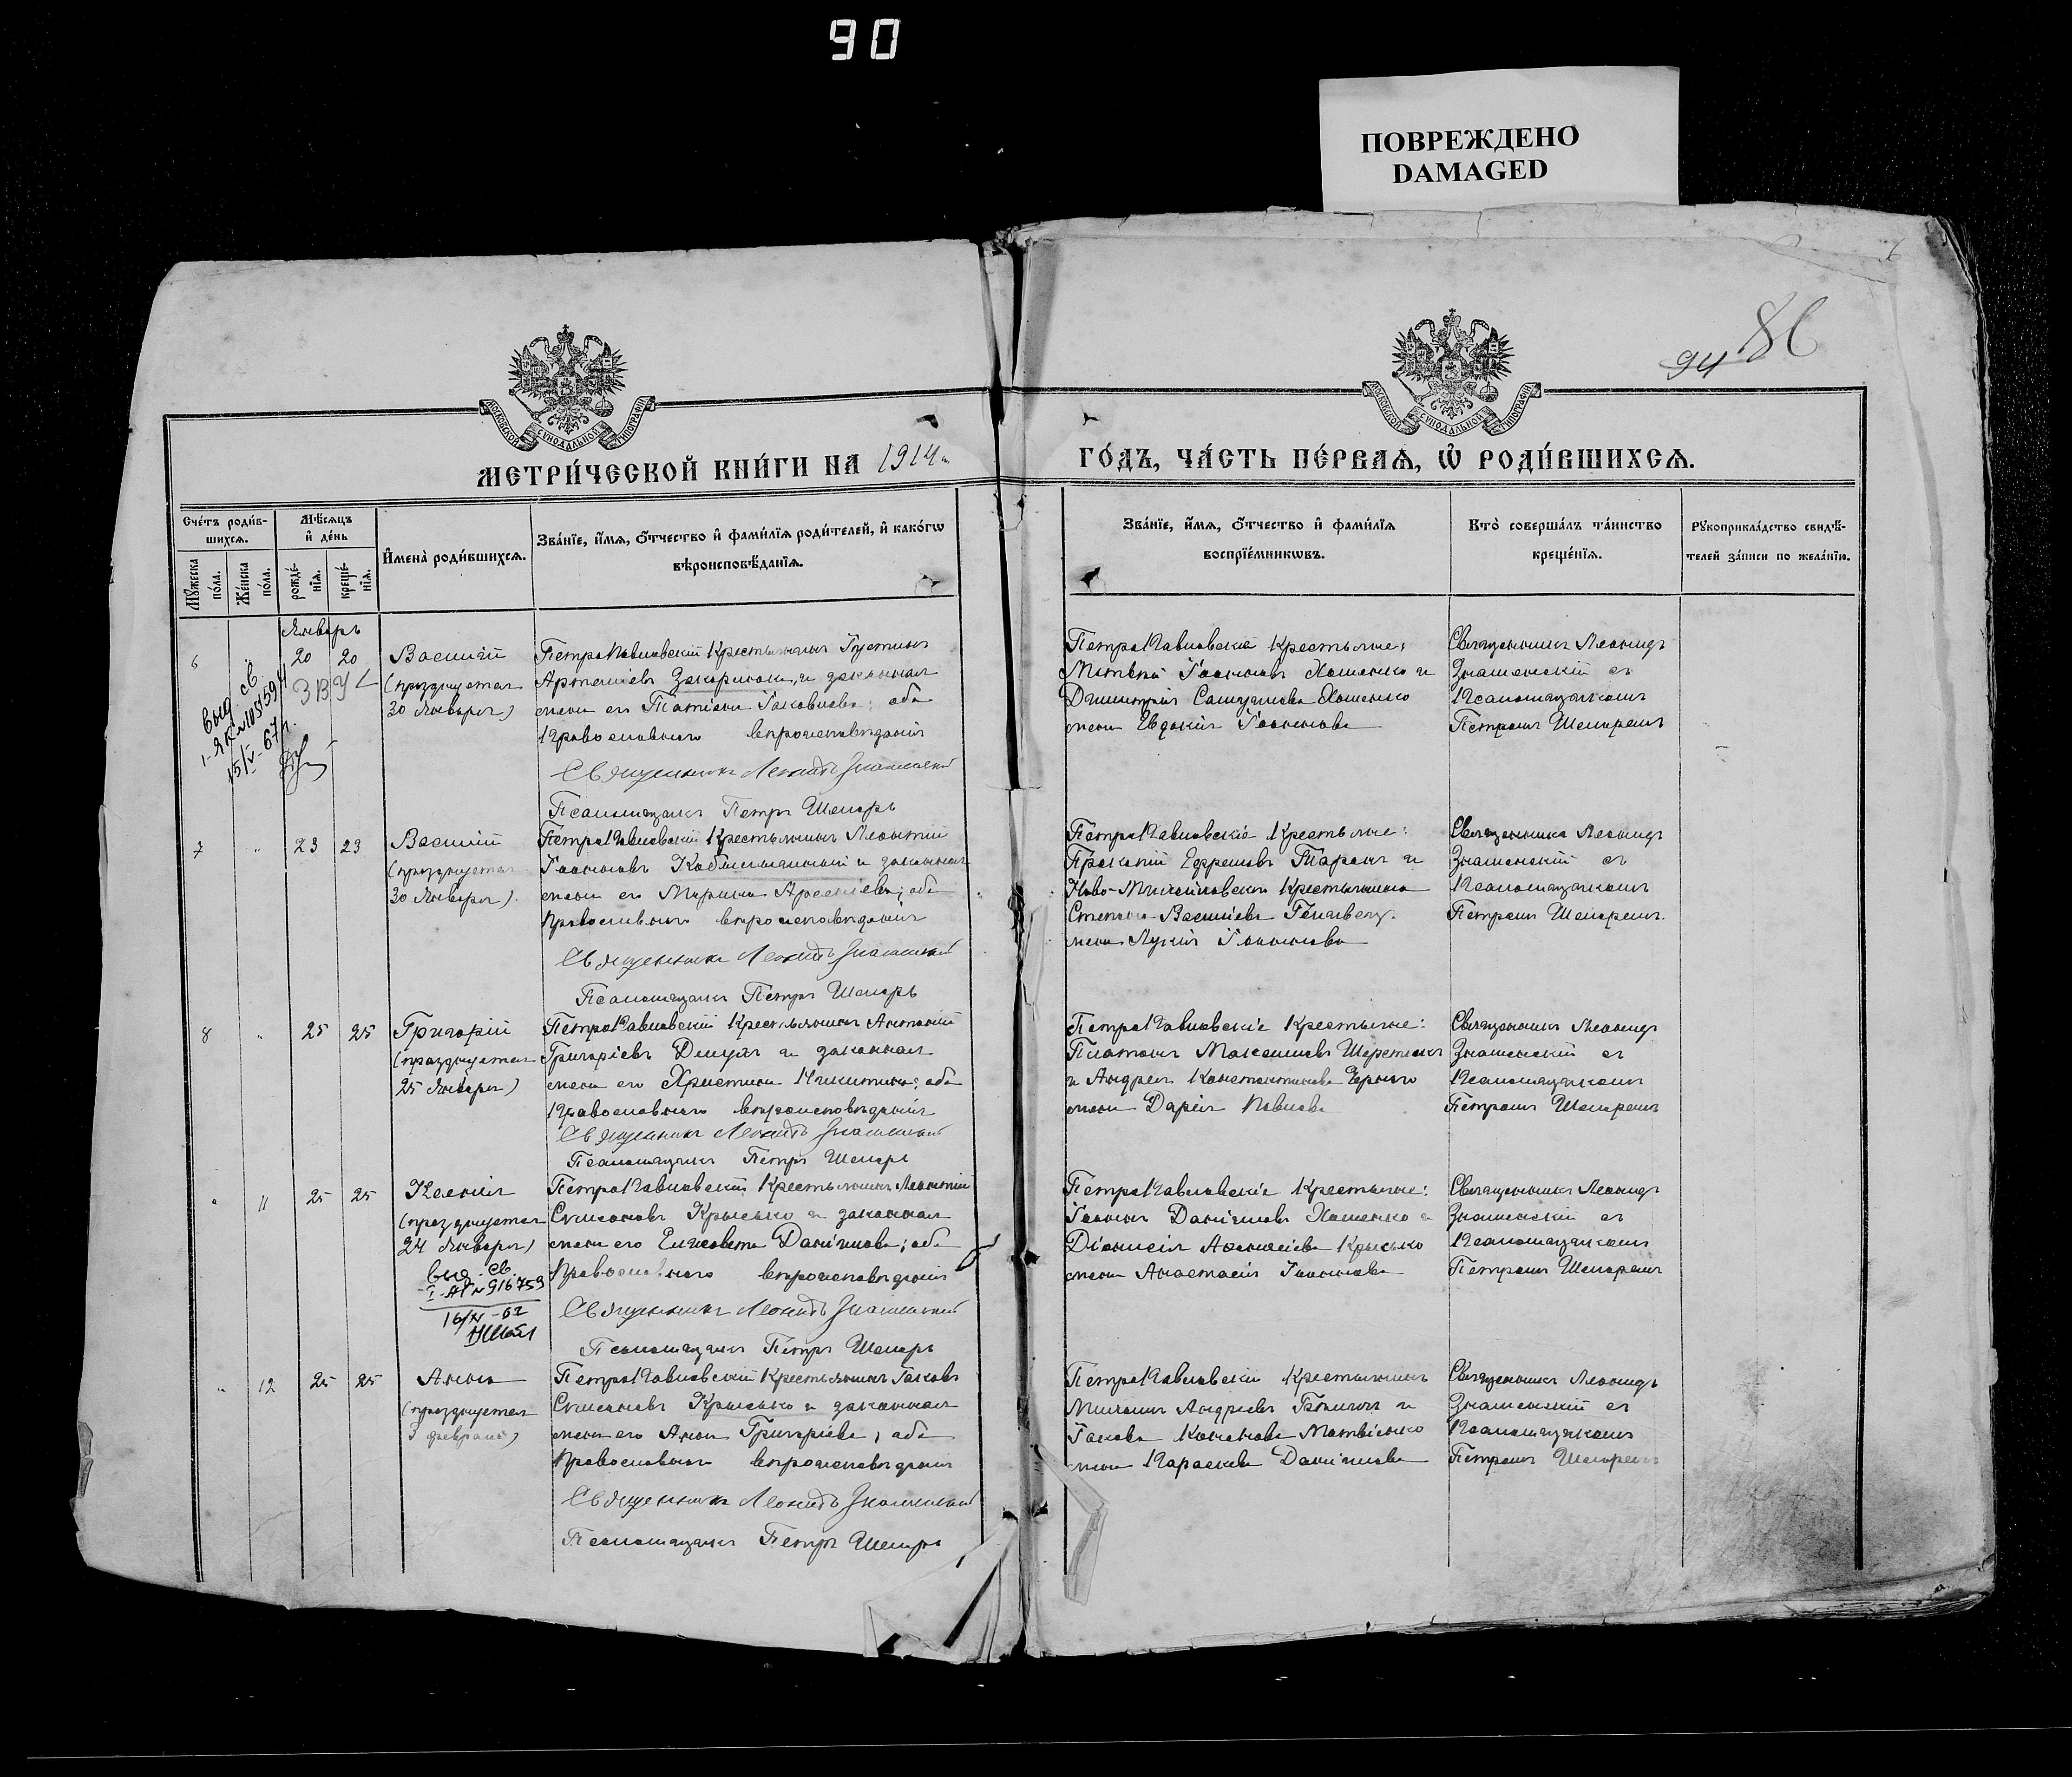 90
ПОВРЕЖДЕНО
DAMAGED
94 86
МОСКОВСКОЙ СУНОДАЛЬНОЙ ТИПОГРАФІИ
МОСКОВСКОЙ СУНОДАЛЬНОЙ ТИПОГРАФІИ
МЕТРИ́ЧЕСКОЙ КНИ́ГИ НА 1914
ГО́ДЪ, ЧА́СТЬ ПЕ́РВАѦ, Ѡ҆ РОДИ́ВШИХСѦ.
Сче́тъ роди́в-
шихсѧ.
Мꙋжеска по́ла.
Же́нска по́ла.
Мѣ́сѧцъ
и҆ де́нь
рожде́-
нїѧ.
креще́-
нїѧ.
И҆мена̀ роди́вшихсѧ.
Зва́нїе, и҆́мѧ, ѻ҆́тчество и҆ фами́лїѧ роди́телей, и҆ како́гѡ
вѣроисповѣ́данїѧ.
Зва́нїе, и҆́мѧ, ѻ҆́тчество и҆ фами́лїѧ
воспрїе́мникѡвъ.
Кто̀ соверша́лъ та́инство
креще́нїѧ.
Рꙋкоприкла́дство свидѣ́-
телей за́писи по жела́нїю.
Январь
6 " 20 20 Василій
(празднуется
30 Января)
выд св
15/V-67г.
ПетроПавловскій Крестьянинъ Іустинъ
Артемьевъ Захарюка, и законная
жена его Татіана Іаковлева; оба
Православнаго вѣроисповѣданія
Священникъ Леонидъ Знаменскій
Псаломщикъ Петръ Шепарь
ПетроПавловскіе Крестьяне:
Матвѣй Іоанновъ Хоменко и
Димитрія Самуилова Хоменко
жена Евдокія Іоаннова
Священникъ Леонидъ
Знаменскій съ
Псаломщикомъ
Петромъ Шепаремъ
7 " 23 23 Василій
(празднуется
30 Января)
ПетроПавловскій Крестьянинъ Леонтій
Іоанновъ и законная
жена его Марина Арсеніева; оба
Православнаго вѣроисповѣданія
Священникъ Леонидъ Знаменскій
Псаломщикъ Петръ Шепарь
ПетроПавловскіе Крестьяне:
Прокопій Ефремовъ Таранъ и
Ново-Михайловскаго Крестьянина
Степана Василіева
жена Лукія Іоаннова
Священникъ Леонидъ
Знаменскій съ
Псаломщикомъ
Петромъ Шепаремъ.
8 " 25 25 Григорій
(празднуется
25 Января)
ПетроПавловскій Крестьянинъ Антоній
Григоріевъ и законная
жена его Христина Никитина; оба
Православнаго вѣроисповѣданія
Священникъ Леонидъ Знаменскій
Псаломщикъ Петръ Шепарь
ПетроПавловскіе Крестьяне:
Платонъ Максимовъ Шереметъ
и Андрея Константинова
жена Дарія Павлова
Священникъ Леонидъ
Знаменскій съ
Псаломщикомъ
Петромъ Шепаремъ
" 11 25 25 Ксенія
(празднуется
24 Января)
выд. св.
I-АГ №916759
16/XI-62
ПетроПавловскій Крестьянинъ Леонтій
Симеоновъ Крысько и законная
жена его Елисавета Даніилова; оба
Православнаго вѣроисповѣданія
Священникъ Леонидъ Знаменскій
Псаломщикъ Петръ Шепарь
ПетроПавловскіе Крестьяне:
Іоаннъ Даніиловъ Хоменко и
Діонисія Крысько
жена Анастасія Іоаннова
Священникъ Леонидъ
Знаменскій съ
Псаломщикомъ
Петромъ Шепаремъ
" 12 25 25 Анна
(празднуется
3 февраля)
ПетроПавловскій Крестьянинъ Іаковъ
Симеоновъ Крысько и законная
жена его Анна Григоріева; оба
Православнаго вѣроисповѣданія
Священникъ Леонидъ Знаменскій
Псаломщикъ Петръ Шепарь
ПетроПавловскій Крестьянинъ
Михаилъ Андреевъ и
Іакова Кононова Матвіенко
жена Параскева Даніилова
Священникъ Леонидъ
Знаменскій съ
Псаломщикомъ
Петромъ Шепаремъ